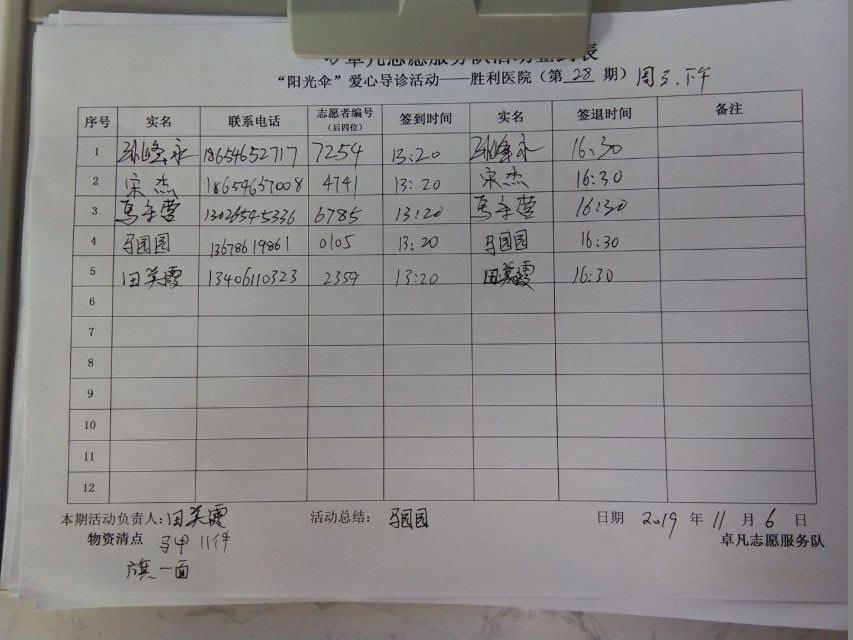 卓凡志愿服务队活动签到表
“阳光伞”爱心导诊活动——胜利医院（第 28 期）周三.下午
序号 实名 联系电话 志愿者编号（后四位） 签到时间 实名 签退时间 备注
1 孙峰永 18654652717 7254 13:20 孙峰永 16:30
2 宋杰 18654657008 4741 13:20 宋杰 16:30
3 13026545336 6785 13:20 16:30
4 马园园 13678619861 0105 13:20 马园园 16:30
5 田美霞 13406110323 2359 13:20 田美霞 16:30
6
7
8
9
10
11
12
本期活动负责人：田美霞 活动总结： 马园园 日期 2019 年 11 月 6 日
物资清点 马甲 11件 卓凡志愿服务队
旗一面